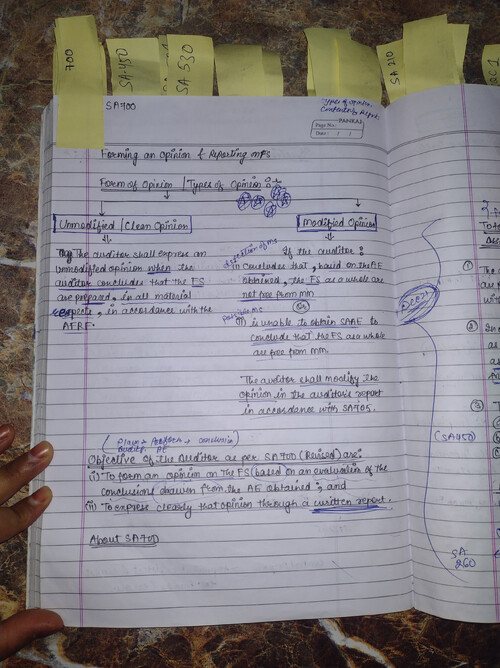 700
SA-450
SA-530
SA 210
SA700
Types of Opinion
Page No.:
PANKAJ
Date: / /
Forming an Opinion & Reporting on FS
Form of Opinion | Types of Opinion
Unmodified | Clean Opinion
Modified Opinion
The auditor shall express an
unmodified opinion when the
auditor concludes that the FS
are prepared, in all material
respects, in accordance with the
AFRF.
If the auditor:
(i) concludes that, based on the AE
obtained, the FS as a whole are
not free from mm
Or
(ii) is unable to obtain SAAE to
conclude that the FS as a whole
are free from mm.
The auditor shall modify the
opinion in the auditor's report
in accordance with SA705.
Objective of the Auditor as per SA700 (Revised) are:
(i) To form an opinion on the FS (based on an evaluation of the
conclusions drawn from the AE obtained; and
(ii) To express clearly that opinion through a written report.
About SA700
(1)
(2)
(3)
(SA450)
SA
260